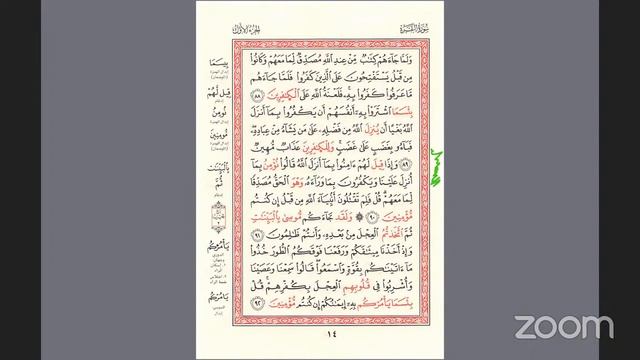 سُورَةُ الْبَقَرَة
الجُزْءُ الأوَّلُ
وَلَمَّا جَآءَهُمْ كِتَٰبٌ مِّنْ عِندِ ٱللَّهِ مُصَدِّقٌ لِّمَا مَعَهُمْ وَكَانُوا۟
مِن قَبْلُ يَسْتَفْتِحُونَ عَلَى ٱلَّذِينَ كَفَرُوا۟ فَلَمَّا جَآءَهُم
مَّا عَرَفُوا۟ كَفَرُوا۟ بِهِۦ فَلَعْنَةُ ٱللَّهِ عَلَى ٱلْكَٰفِرِينَ ٨٨
بِئْسَمَا ٱشْتَرَوْا۟ بِهِۦٓ أَنفُسَهُمْ أَن يَكْفُرُوا۟ بِمَآ أَنزَلَ
ٱللَّهُ بَغْيًا أَن يُنزِلَ ٱللَّهُ مِن فَضْلِهِۦ عَلَىٰ مَن يَشَآءُ مِنْ عِبَادِهِۦ
فَبَآءُو بِغَضَبٍ عَلَىٰ غَضَبٍ وَلِلْكَٰفِرِينَ عَذَابٌ مُّهِينٌ
٨٩ وَإِذَا قِيلَ لَهُمْ ءَامِنُوا۟ بِمَآ أَنزَلَ ٱللَّهُ قَالُوا۟ نُؤْمِنُ بِمَآ
أُنزِلَ عَلَيْنَا وَيَكْفُرُونَ بِمَا وَرَآءَهُۥ وَهْوَ ٱلْحَقُّ مُصَدِّقًا
لِّمَا مَعَهُمْ قُلْ فَلِمَ تَقْتُلُونَ أَنۢبِيَآءَ ٱللَّهِ مِن قَبْلُ إِن كُنتُم
مُّؤْمِنِينَ ٩٠ ۞ وَلَقَد جَّآءَكُم مُّوسَىٰ بِٱلْبَيِّنَٰتِ
ثُمَّ ٱتَّخَذتُّمُ ٱلْعِجْلَ مِنۢ بَعْدِهِۦ وَأَنتُمْ ظَٰلِمُونَ ٩١
وَإِذْ أَخَذْنَا مِيثَٰقَكُمْ وَرَفَعْنَا فَوْقَكُمُ ٱلطُّورَ خُذُوا۟
مَآ ءَاتَيْنَٰكُم بِقُوَّةٍ وَٱسْمَعُوا۟ قَالُوا۟ سَمِعْنَا وَعَصَيْنَا
وَأُشْرِبُوا۟ فِى قُلُوبِهِمِ ٱلْعِجْلَ بِكُفْرِهِمْ قُلْ
بِئْسَمَا يَأْمُرْكُم بِهِۦٓ إِيمَٰنُكُمْ إِن كُنتُم مُّؤْمِنِينَ ٩٢
بِيسَمَا
قِيل لَّهُمْ
نُومِنُ
مُومِنِينَ
بِٱلْبَيِّنَٰت
ثُّمَّ
يَأْمُرُكُم
يَامُرْكُم
١٤
zoom